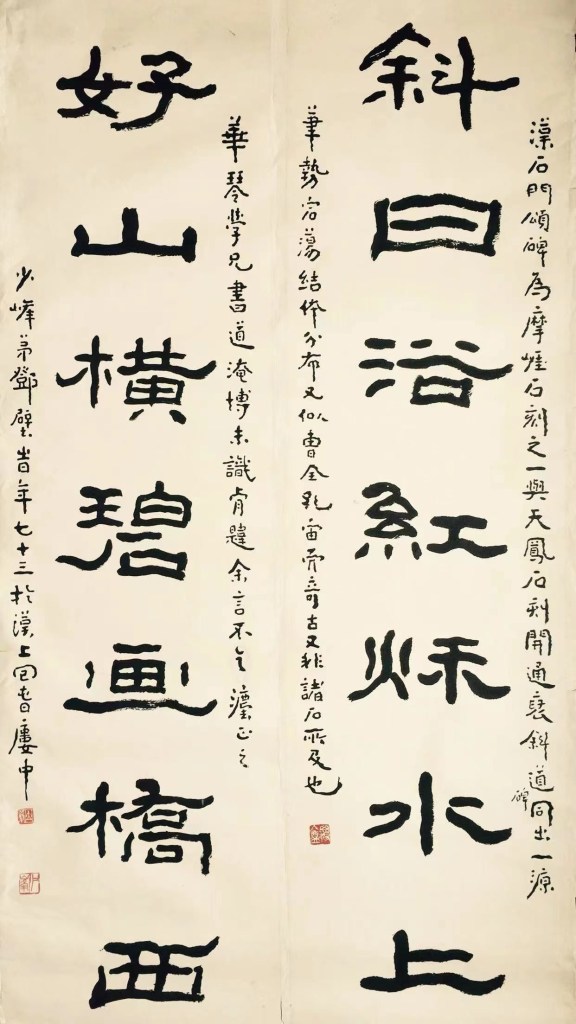 漢石門頌碑為摩崖石刻之一與天鳳石刻開通褒斜道碑同出一源
斜日浴紅秌水上
筆勢宕蕩結体分布又似曹全孔宙而奇古又非諸石所及也
華琴學兄書道淹博未識肯韙余言不乞灋正之
好山橫碧画橋西
少峰弟鄧壁旹年七十三於漢上回春廔中